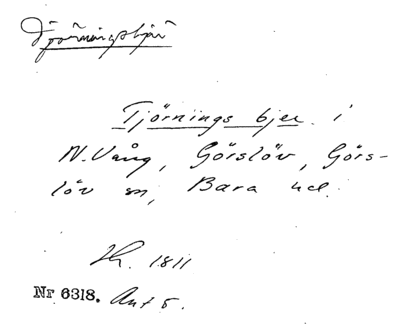 Tjörningsbjär
Tjörnings bjer i
N. Vång, Görslöv, Görs-
löv sn, Bara hd.
Sk. 1811
Nr 6318. Ant 5.